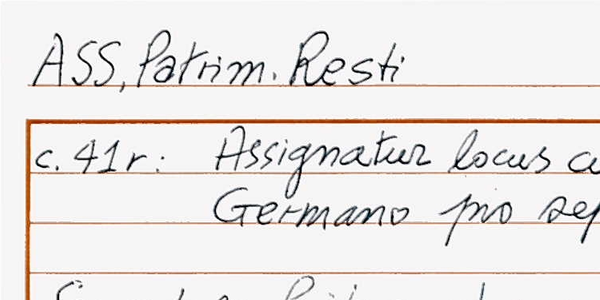 ASS, Patrim. Resti
c. 41r: Assignatur locus
Germano pro